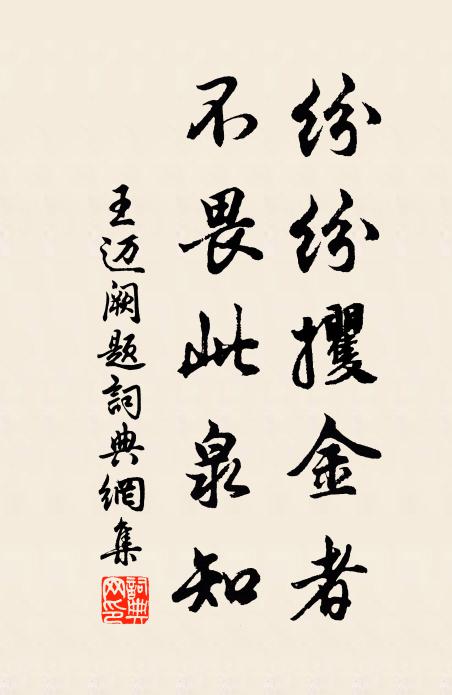 纷纷攫金者
不畏此泉知
王迈阙题詞典網集
詞典网印